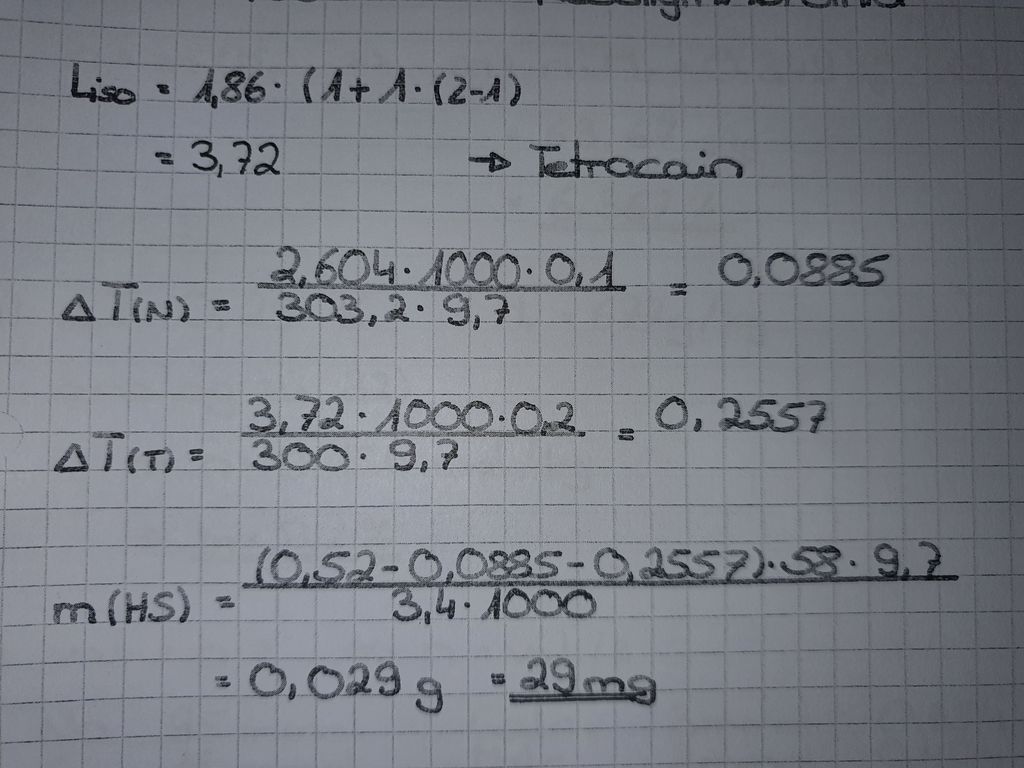 Liso = 1,86 · (1 + 1 · (2-1)
= 3,72 → Tetrocain
ΔT(N) = 2,604 · 1000 · 0,1 / 303,2 · 9,7 = 0,0885
ΔT(T) = 3,72 · 1000 · 0,2 / 300 · 9,7 = 0,2557
m(HS) = (0,52 - 0,0885 - 0,2557) · 58 · 9,7 / 3,4 · 1000
= 0,029 g = 29 mg